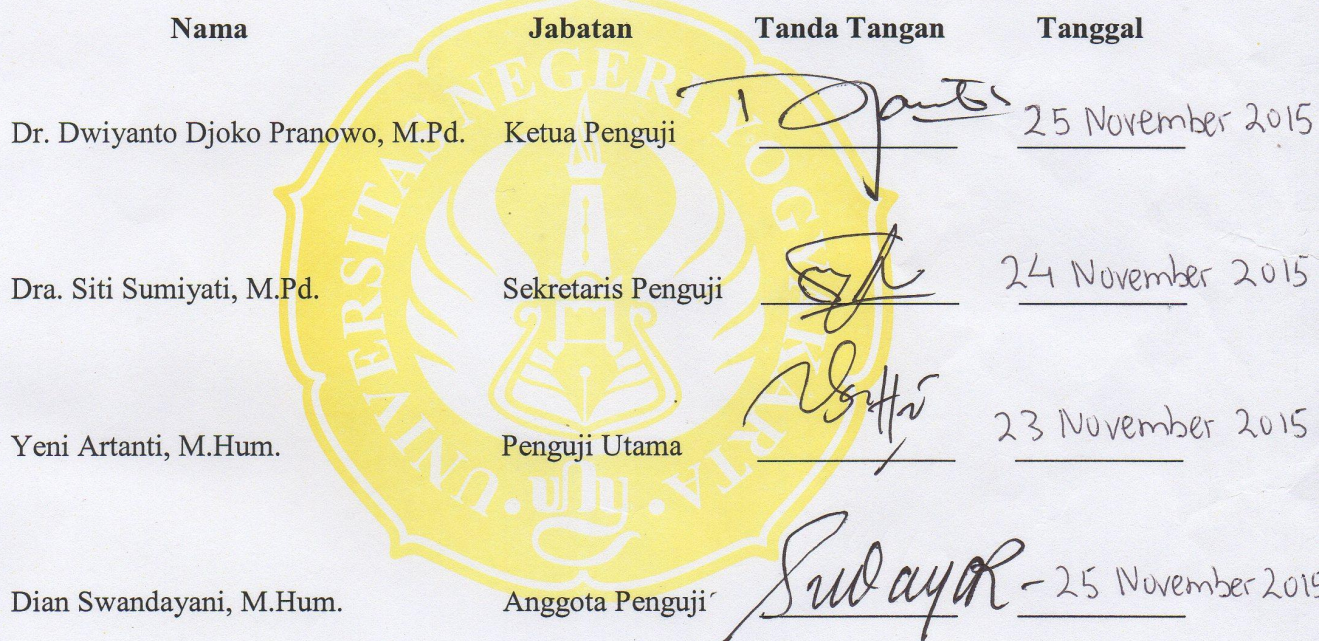 Nama Jabatan Tanda Tangan Tanggal
Dr. Dwiyanto Djoko Pranowo, M.Pd. Ketua Penguji 25 November 2015
Dra. Siti Sumiyati, M.Pd. Sekretaris Penguji 24 November 2015
Yeni Artanti, M.Hum. Penguji Utama 23 November 2015
Dian Swandayani, M.Hum. Anggota Penguji 25 November 2015
UNIVERSITAS NEGERI YOGYAKARTA
uny